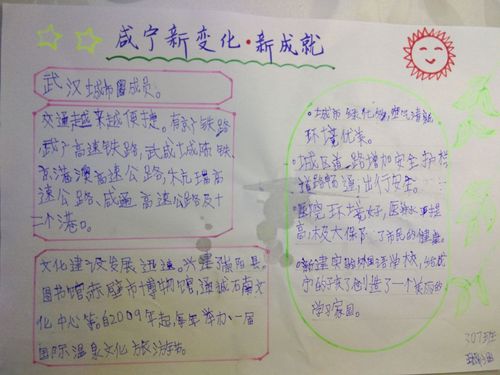 咸宁新变化·新成就
武汉城市圈成员。
交通越来越便捷。有京广铁路
武广高速铁路,武咸城际铁
京港澳高速公路,杭瑞高
速公路、咸通高速公路及十
二个港口。
文化建设发展迅速。兴建了崇阳县
图书馆赤壁市博物馆,通城石南文
化中心等。自2009年起每年举办一届
国际温泉文化旅游节。
城市绿化好,空气清新
环境优美。
城区道路增加安全护栏
道路畅通,出行安全。
医院环境好,医疗水平提
高,极大保障了市民的健康。
新建实验外国语学校,给咸
宁的孩子创造了一个美丽的
学习家园。
307班